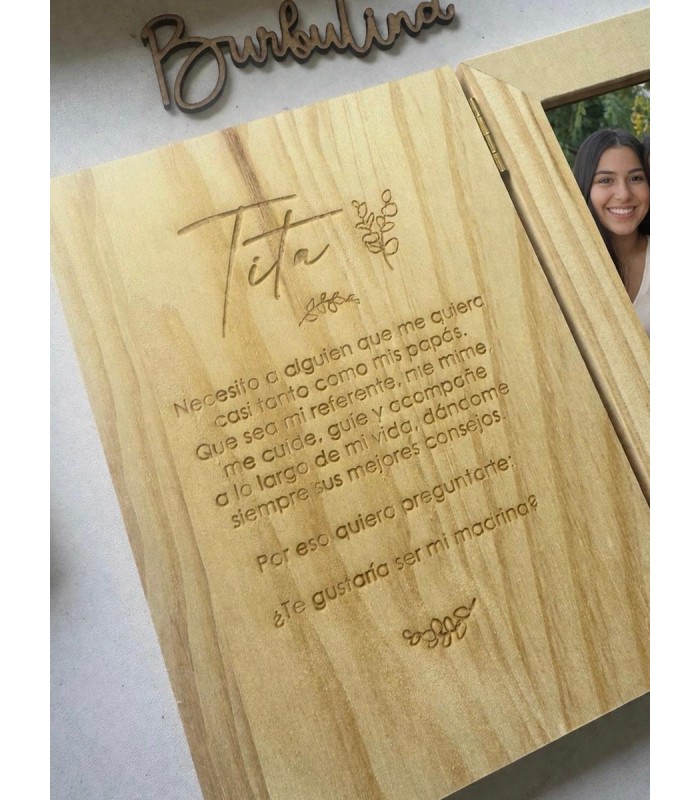 Burbulina
Tita
Necesito a alguien que me quiera
casi tanto como mis papás.
Que sea mi referente, me mime,
me cuide, guíe y acompañe
a lo largo de mi vida, dándome
siempre sus mejores consejos.
Por eso quiero preguntarte:
¿Te gustaría ser mi madrina?